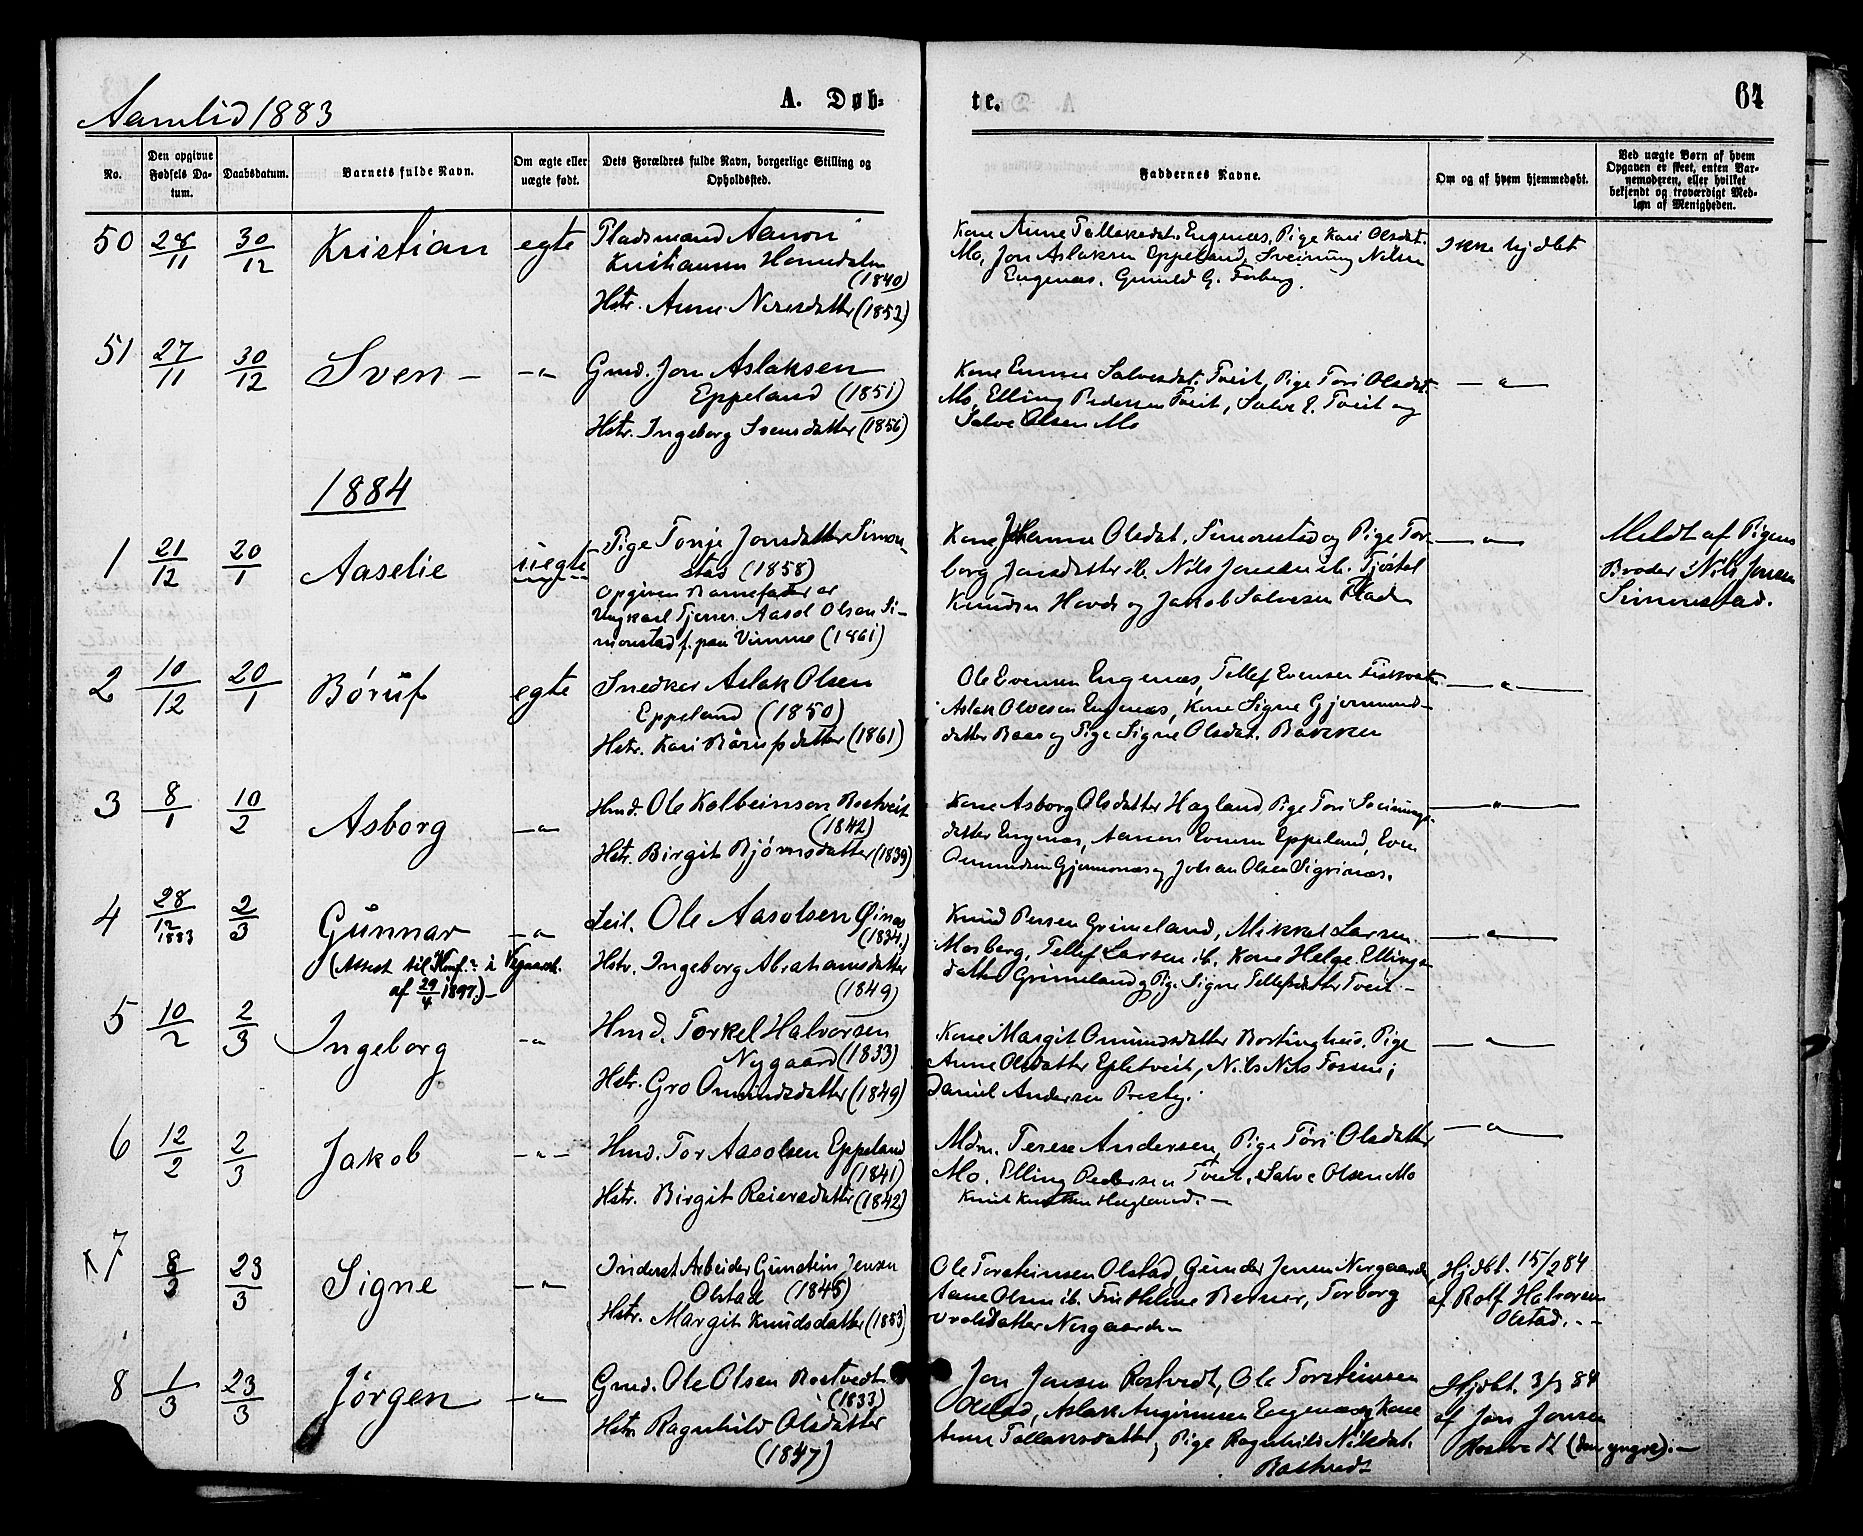 Aamlid 1883
A. Døb-
te.
64
No.
Den opgivne Fødsels Da-tum.
Daabsdatum.
Barnets fulde Navn.
Om ægte eller uægte født.
Dets Forældres fulde Navn, borgerlige Stilling og Opholdssted.
Faddernes Navne.
Om og af hvem hjemmedøbt.
Ved uægte Børn af hvem Opgaven er skeet, enten Bar-nemoderen, eller hvilket bekjendt og troværdigt Med-lem af Menigheden.
50 28/11 30/12 Kristian egte
Pladsmand Aanon
Kristiansen Homdalen
(1840)
Hstr. Anne Nilsdatter (1852)
Kone Anne Tallaksdat. Engenæs, Pige Kari Olsdat.
Mo, Jon Aslaksen Eppeland, Sveinung Nilsen
Engenæs, Gunild G. Forberg.
Ikke hjdbt
51 27/11 30/12 Sven – –"–
Gmd. Jon Aslaksen
Eppeland (1851)
Hstr. Ingeborg Svensdatter (1856)
Kone Emma Salvesdat. Tveit, Pige Tori Olsdat.
Mo, Elling Pedersen Tveit, Salve E. Tveit og
Salve Olsen Mo
–"–
1884
1 21/12 20/1 Aaselie uegte
Pige Tonje Jonsdatter Simon-
stad (1858)
Opgiven Barnefader er
Ungkarl Tjener Aasol Olsen Si-
monstad f. paa Vimme (1861)
Kone Johanne Olsdat. Simonstad og Pige Tor-
borg Jonsdatter ib. Nils Jonsen ib. Tjøstol
Knudsen Hovde og Jakob Salvesen Fladen
–"–
Meldt af Pigens
Broder Nils Jonsen
Simonstad.
2 10/12 20/1 Børuf egte
Snedker Aslak Olsen
Eppeland (1850)
Hstr. Kari Børufsdatter (1861)
Ole Evensen Engenæs, Tellef Evensen Fiskvatn
Aslak Olvesen Engenæs, Kone Signe Gjermund-
datter Baas og Pige Signe Olsdat.
–"–
3 8/1 10/2 Asborg –"–
Hmd. Ole Kolbeinson Rostveit
(1842)
Hstr. Birgit Bjørnsdatter (1839)
Kone Asborg Olsdatter Hagland, Pige Tori Sveinungs-
datter Engenæs, Aanon Evensen Eppeland, Even
Omundsen Gjermonnæs og Johan Olsen Sigrinæs.
–"–
4 28/12 1883 2/3 Gunnar –"–
(Attest til Konf.n i Vegaarsh.
af 29/4 1897.)–
Leil. Ole Aasolsen Øinæs
(1834.)
Hstr. Ingeborg Abrahamsdatter
(1849)
Knud Persen Grimeland, Mikkel Larsen
Mosberg, Tellef Larsen ib. Kone Helge Ellings-
datter Grimeland og Pige Signe Tellefsdatter Tveit –
–"–
5 10/2 2/3 Ingeborg –"
Hmd. Torkel Halvorsen
Nygaard (1833)
Hstr. Gro Omundsdatter (1849)
Kone Margit Omundsdatter Bortinghus, Pige
Anne Olsdatter Epletveit, Nils Nils Fossen;
Daniel Andersen Presteg.
–"–
6 12/2 2/3 Jakob –"–
Hmd. Tor Aasolsen Eppeland
(1841)
Hstr. Birgit Reiersdatter (1842)
Mdm. Terese Andersen, Pige Tori Olsdatter
Mo. Elling Pedersen Tveit, Salve Olsen Mo
Knut Knutsen Hagland. –
–"–
7 8/3 23/3 Signe –"–
Inderst Arbeider Gunstein Jensen
Olstad (1845)
Hstr. Margit Knudsdatter (1853)
Ole Torsteinsen Olstad, Gunder Jensen Nergaarden
Aane Olsen ib. Fru Helene Berner, Torborg
Nergaarden
Hjdbt. 15/2 84
af Rolf Halvorsen
Olstad. – –
8 1/3 23/3 Jørgen –"–
Gmd. Ole Olsen Rostvedt
(1833)
Hstr. Ragnhild Olsdatter
(1847)
Jon Jonsen Rostvedt, Ole Torsteinsen
Olstad, Aslak Engenæs og Kone
Anne Tallaksdatter, Pige Ragnhild Nilsdat.
Rostvedt
Hjdbt. 3/3 84
af Jon Jonsen
Rostvedt (den yngre). –